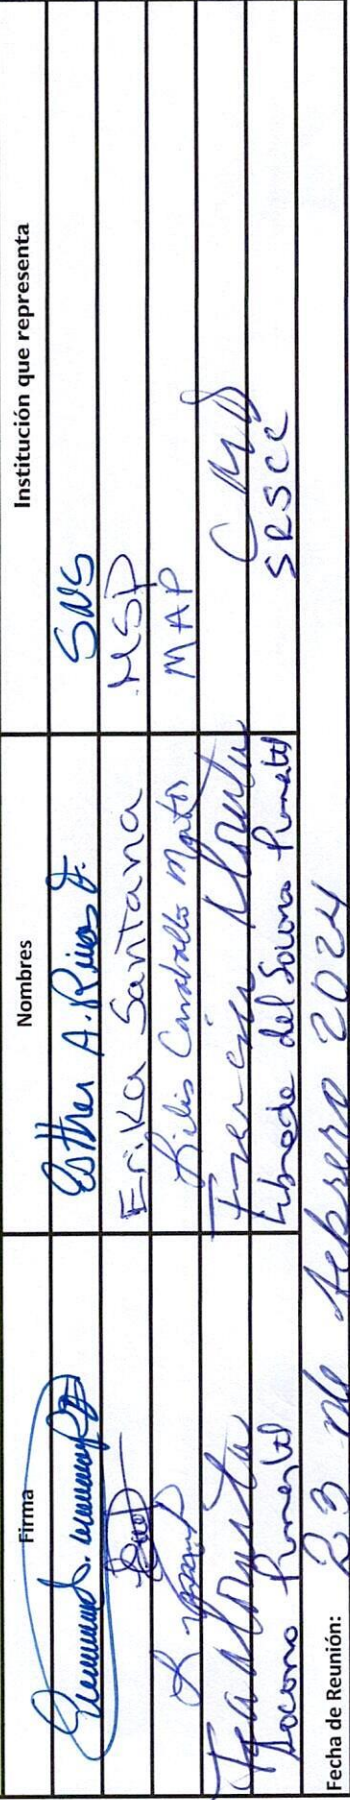 Firma Nombres Institución que representa
Esther A. Rivas D. SNS
Erika Santana MSP
Lilis Caraballo Matos MAP
Francisca Moronta CMD
Socorro Pimentel Librada del Socorro Pimentel SRSCC
Fecha de Reunión: 23 de febrero 2024